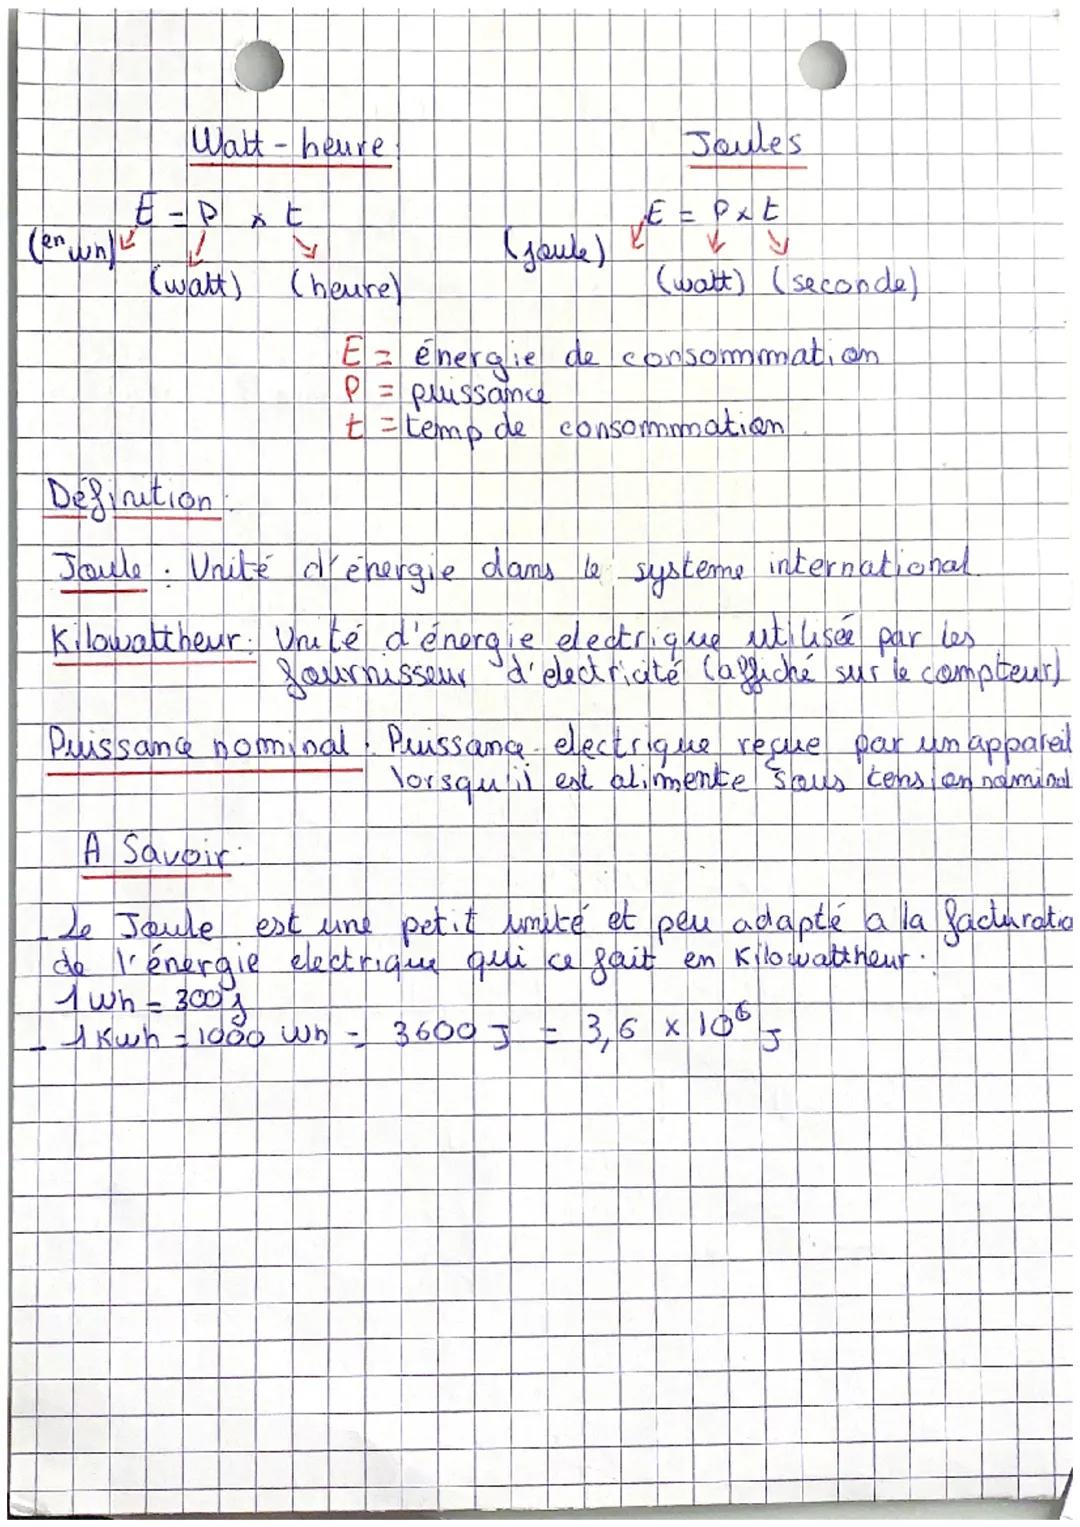 Watt-heure
Joules
E = P x t
E = P x t
(en wh)
(joule)
(watt) (heure)
(watt) (seconde)
E = énergie de consommmation
P = puissance
t = temp de consommmation.
Définition:
Joule : Unité d'énergie dans le systeme international.
Kilowattheur: Unité d'énergie electrique utilisée par les
fournisseur d'electricité (affiché sur le compteur)
Puissance nominal : Puissance electrique reçue par un appareil
lorsqu'il est alimente sous tension nominal
A Savoir:
- Le Joule est une petit unité et peu adapté a la facturatio
de l'énergie electrique qui ce fait en Kilowattheur.
1 Wh = 300 j
- 1 Kwh = 1000 Wh = 3600 J = 3,6 x 10⁶ J